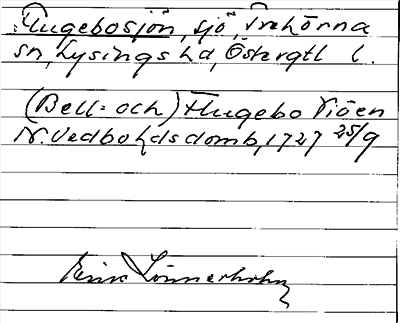 Hugebosjön, sjö, Trehörna
sn, Lysings hd, Östergtl l.
(Bell- och) Hugebo Siöen
N. Vedbo hds domb, 1727 25/9